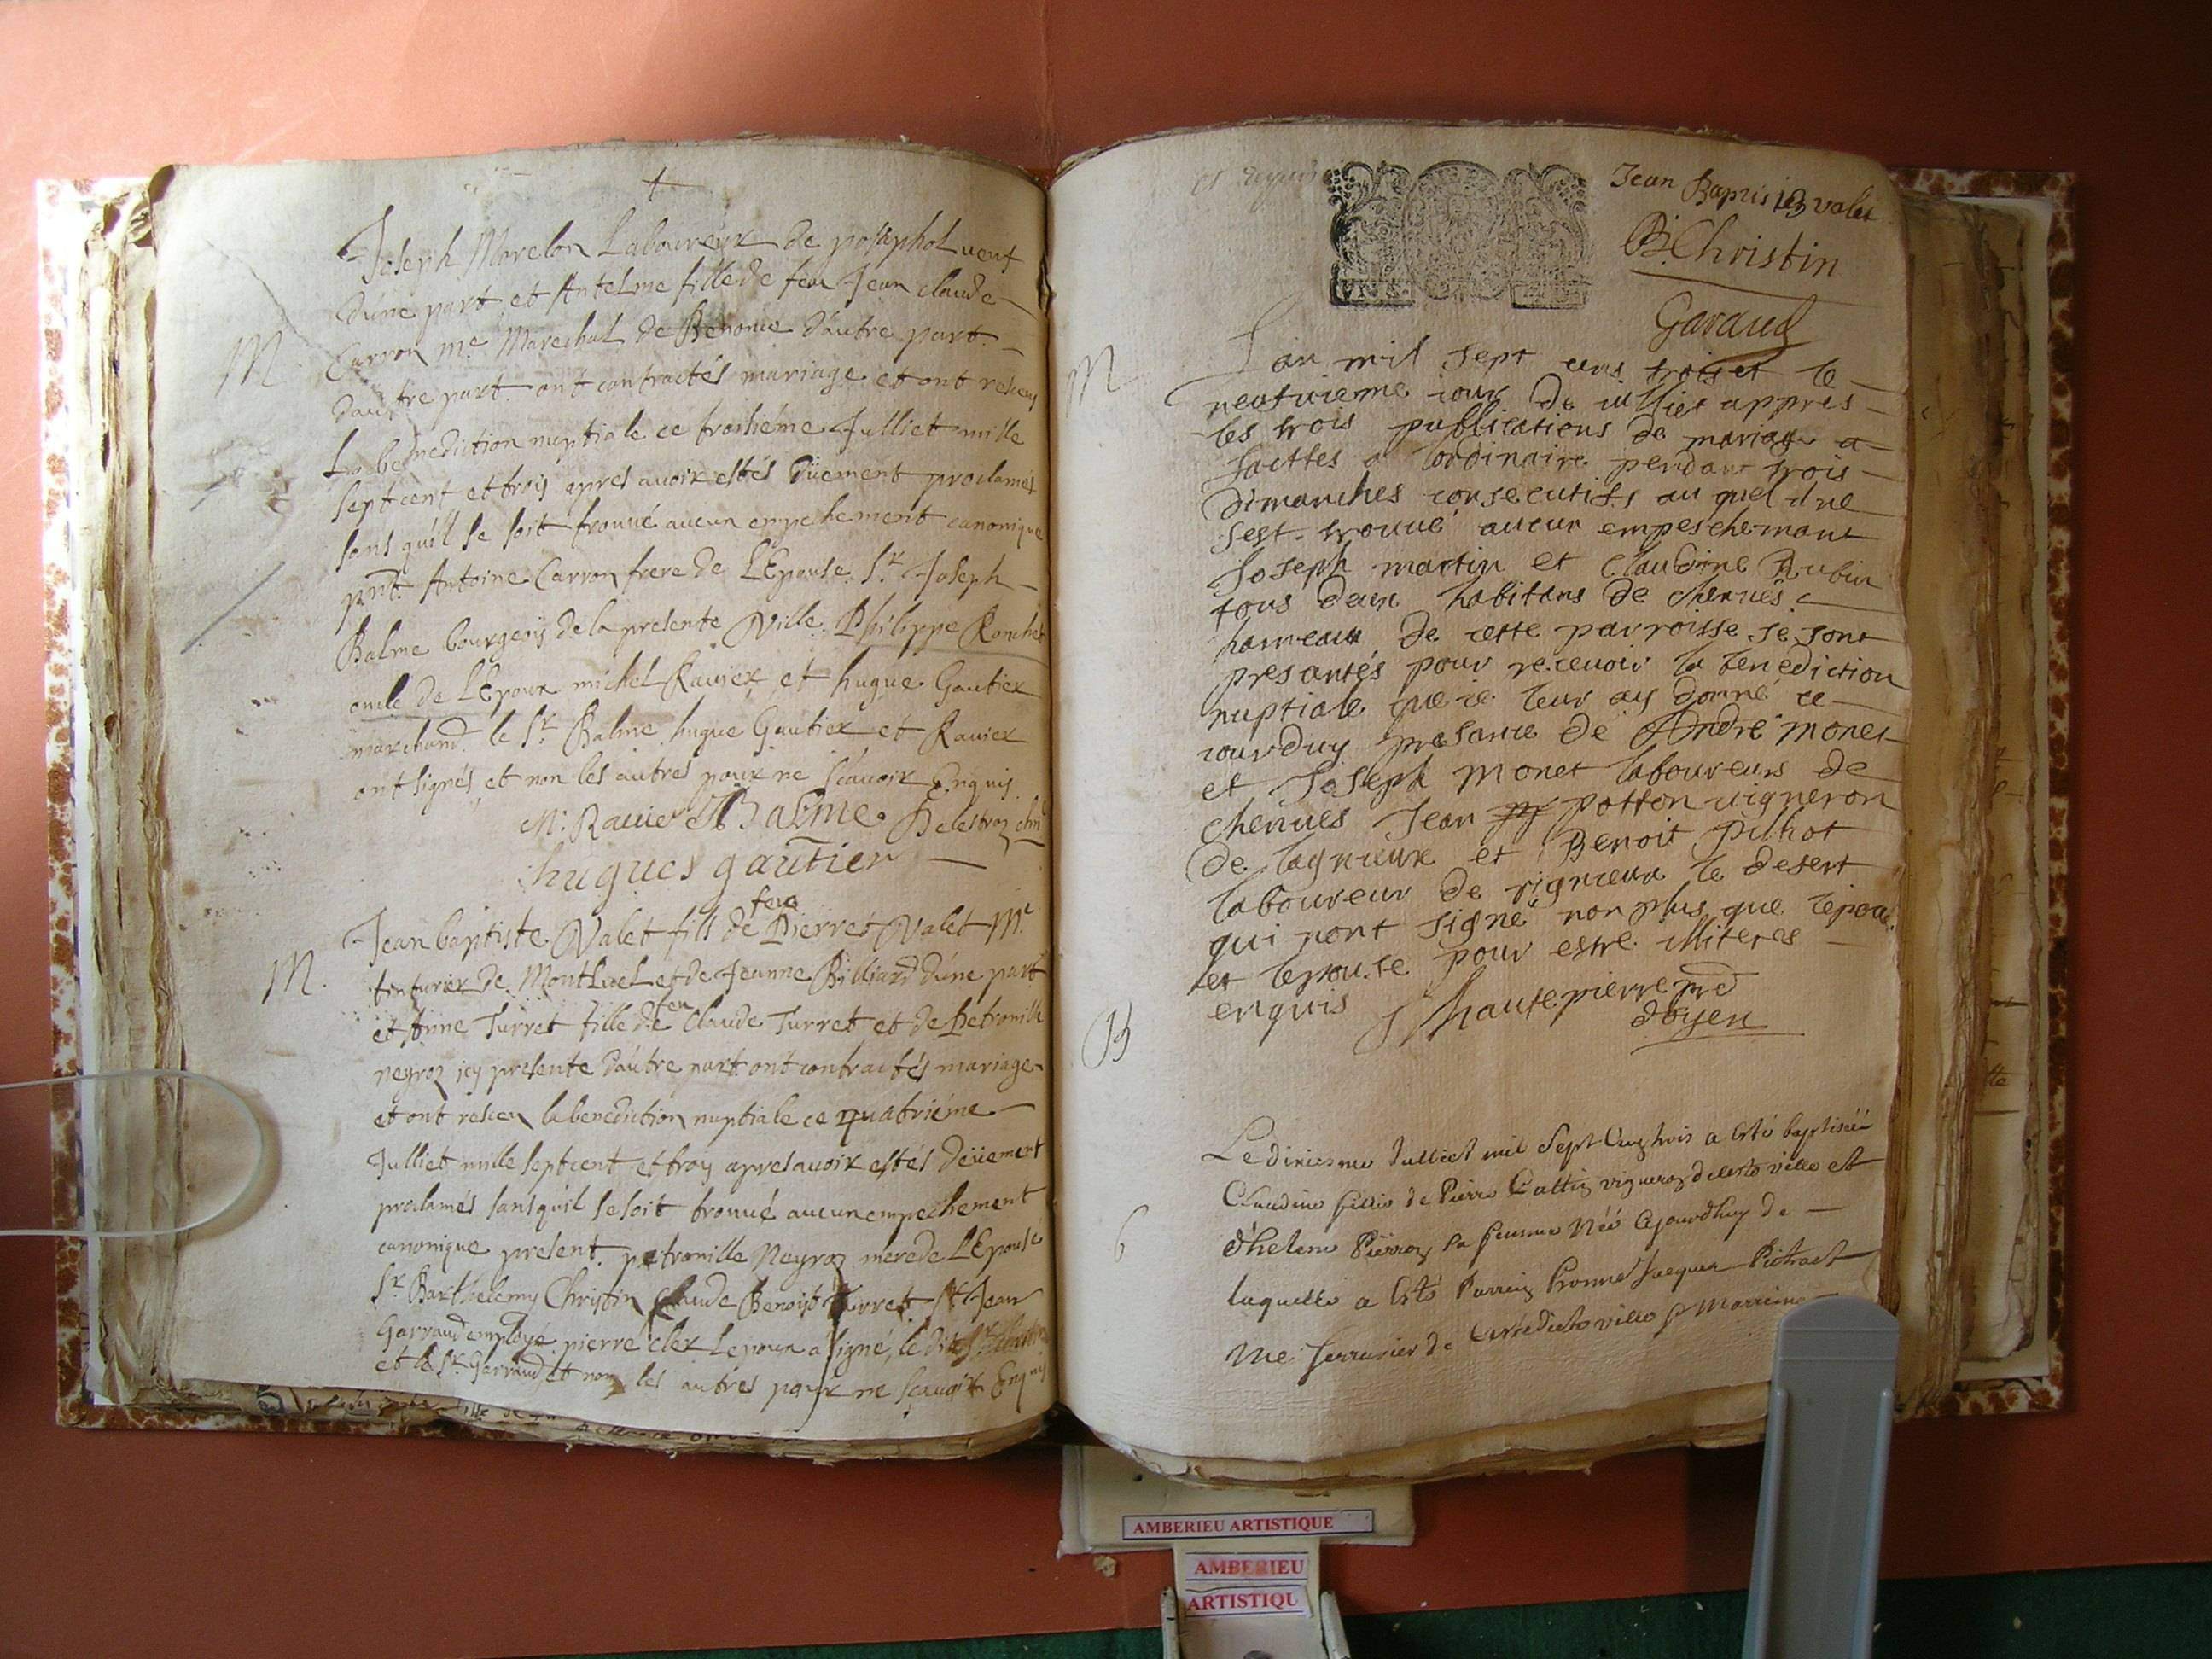 Joseph Morelon Laboureur de posaphol veuf
d'une part et Antelme fille de feu Jean claude
M Carron me Marechal de Benonce d'autre part
d'autre part ont contractés mariage et ont resceu
La benediction nuptiale ce troisiéme Julliet mille
sept cent et trois apres avoir estés düement proclamés
sans qu'il se soit trouué aucun empechement canonique
pnt. Antoine Carron frere de L'Epouse, Sr Joseph
Balme bourgeois de la presente Ville Philippe
oncle de L'Epoux michel Rauier et hugue Gautier
marchand le Sr Balme hugue Gautier et Rauier
ont signés et non les autres pour ne scauoir Enquis
M: Rauier Balme
hugues gautier
feu
M. Jean baptiste Valet fils de Pierre Valet Me
tinturier de Montluel et de Jeanne Billiard d'une part
feu
et Anne Turret fille de Claude Turret et de Petronille
negroz icy presente d'autre part ont contractés mariage
et ont resceu la benediction nuptiale ce quatriéme
Julliet mille sept cent et trois apres auoir estés deüement
proclamés sans qu'il se soit trouué aucun empechement
canonique present petronille Neyroz mere de L'Epouse
Sr Barthelemy Christin Claude Benoist Turret Sr Jean
Garraud employé pierre cler Lepoux a signé, le dit Sr
et le Sr Garraud et non les autres pour ne scauoir Enquis
Jean Baptiste valet
B. Christin
Garaud
M Lan mil sept cens trois et le
neufuieme iour de iulliet appres
les trois publications de mariage
faittes a lordinaire pendant trois
dimanches consecutifs au quel il ne
sest trouué aucun empeschemant
Joseph martin et Claudine Rubin
tous deux habitans de chenues
hameaux de cette parroisse se sont
presantés pour receuoir la benediction
nuptiale que ie leur ay donné ce
iourduy presance de André monet
et Joseph Monet laboureurs de
chenues Jean potton uigneron
de lagnieux et Benoit pilhot
laboureur de rignieux le desert
qui nont signé non plus que lepoux
et lepouse pour estre illiteres
enquis J hautepierre prd
doyen
B
Le dixiesme Julliet mil sept Cens trois a Esté baptisée
Claudine fillie de Pierre vigneron de ceste ville et
6 d'helene Pierron sa femme Née Cejourdhuy de
laquelle a Esté Parrein honne Jacques
Me serrurier de ceste dicte ville & Marreine
AMBERIEU ARTISTIQUE
AMBERIEU
ARTISTIQU